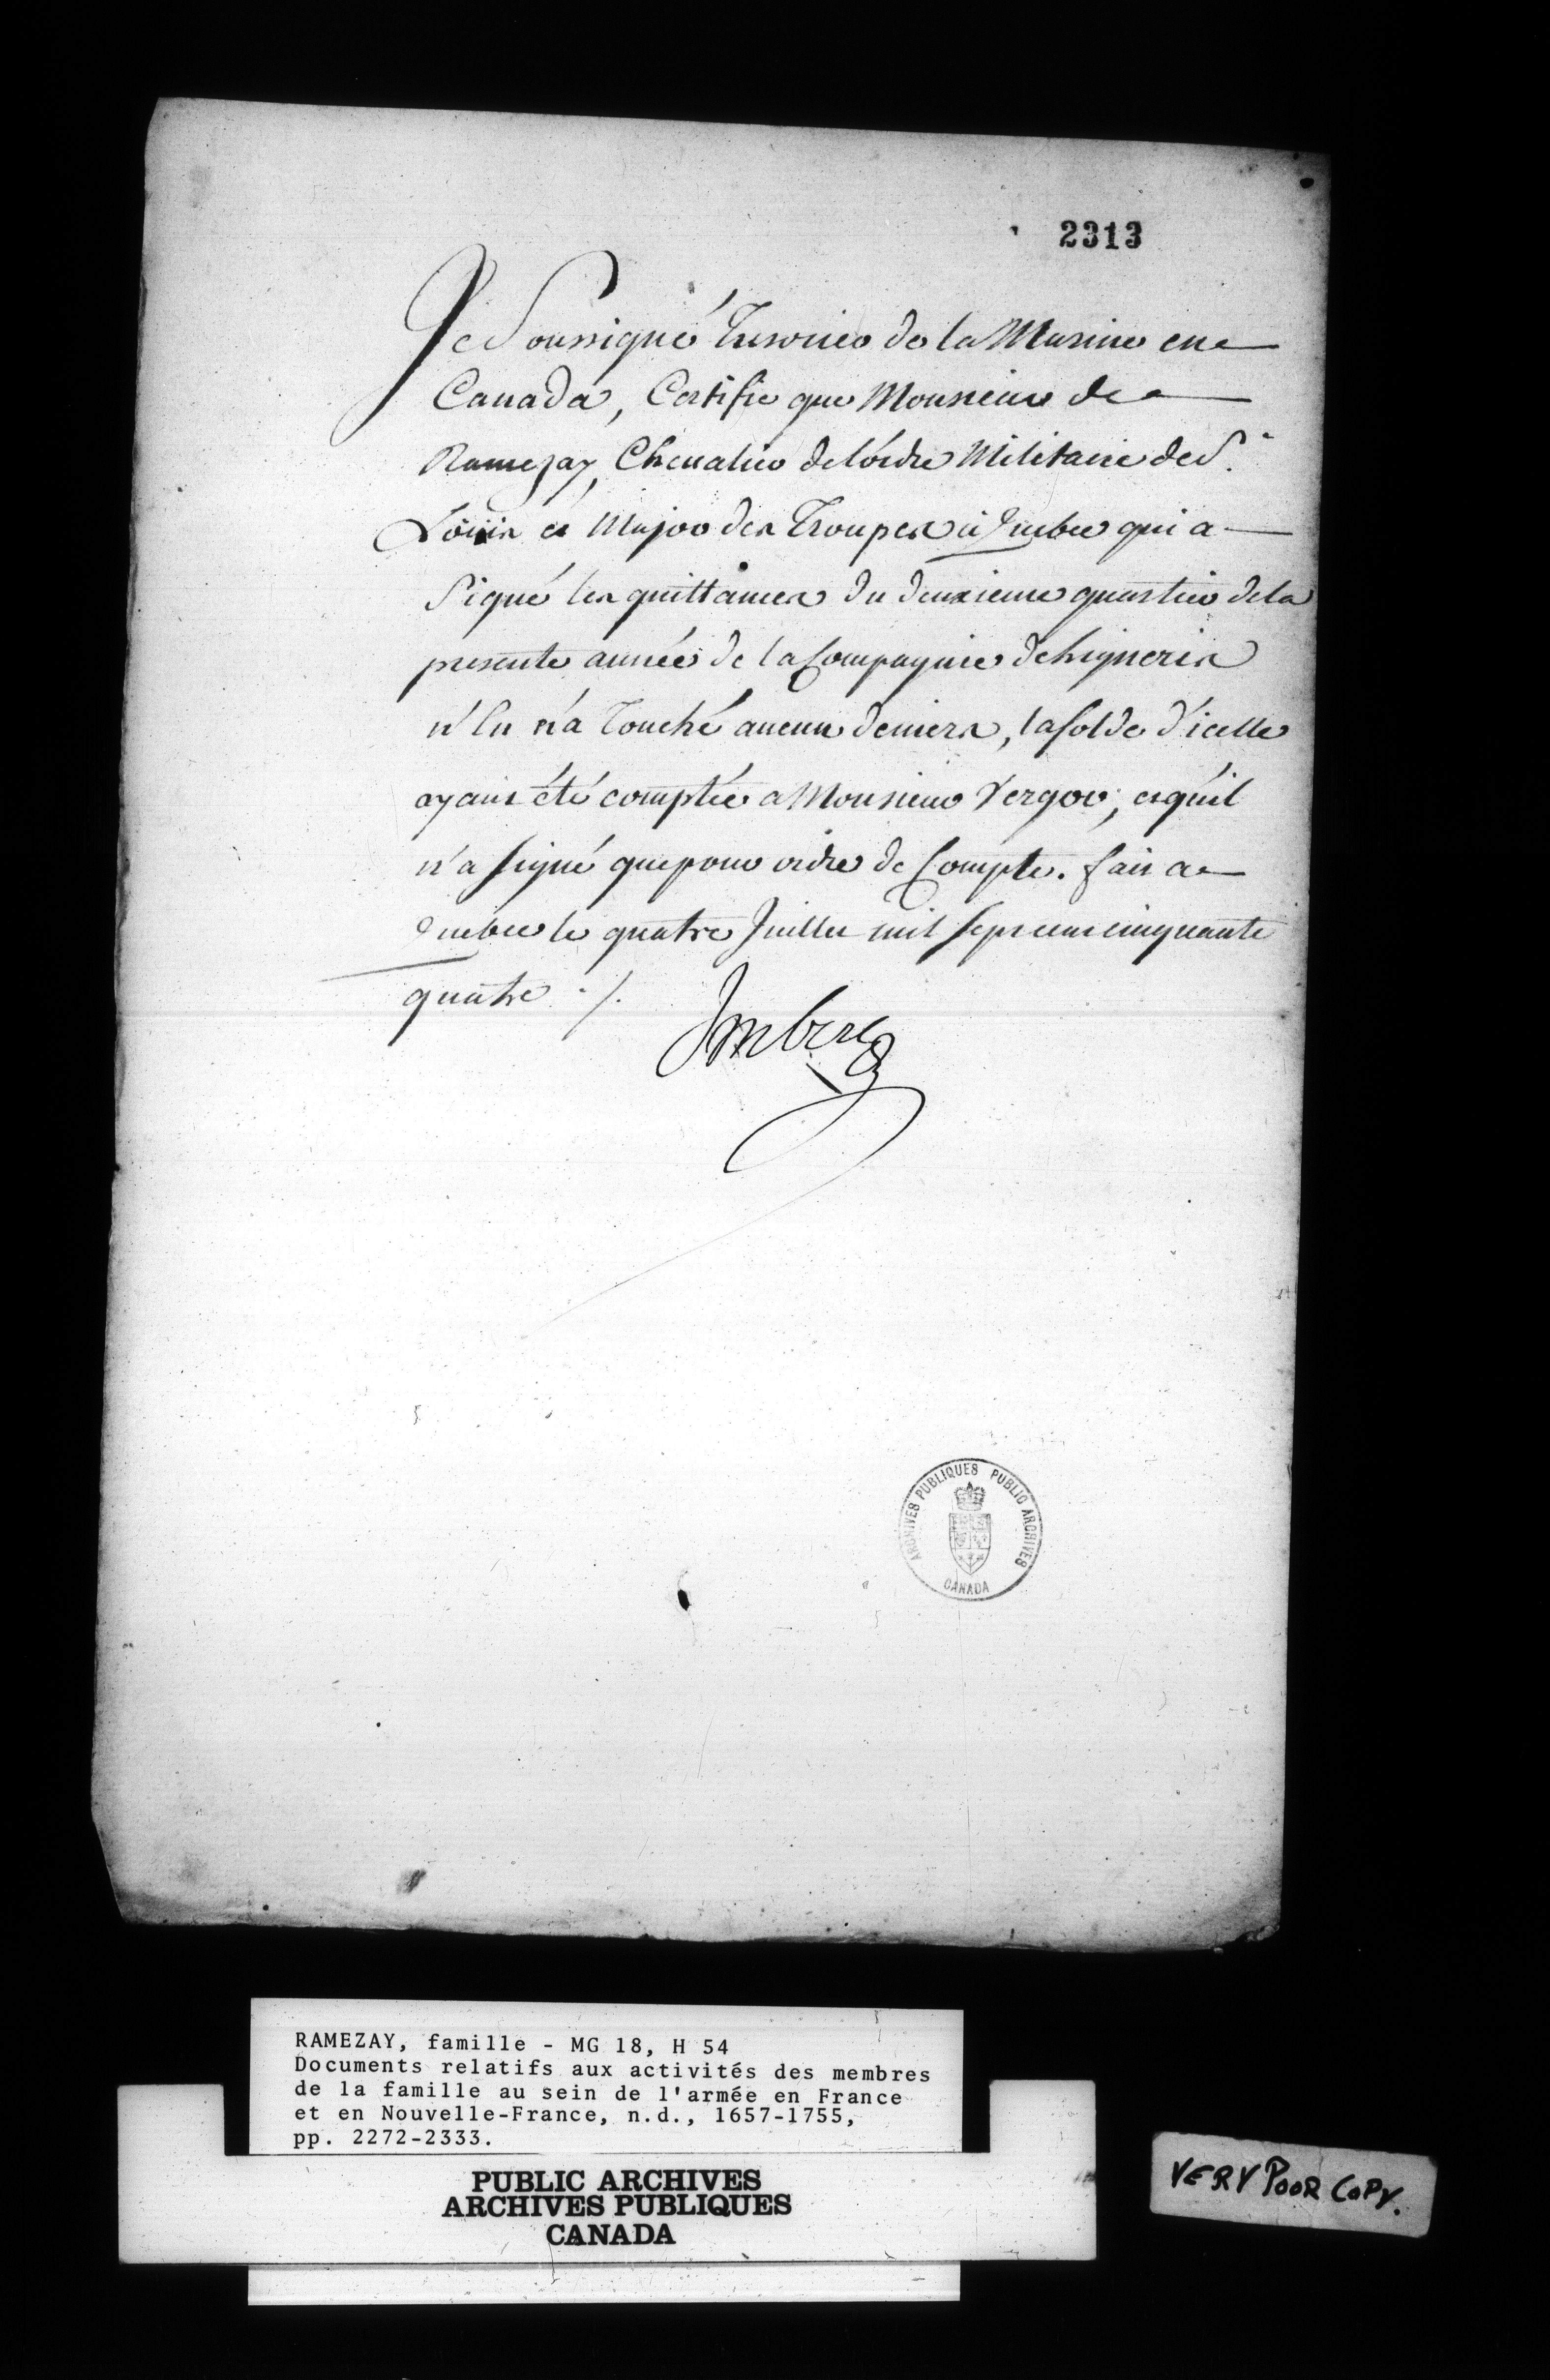 2313
Je Soussigné Tresorier de la Marine en
Canada, Certifie que Monsieur de
Ramezay, Chevalier de l'ordre Militaire de S.t
Loüis et Major des Troupes à Quebec qui a
Signé les quittances du deuxieme quartier de la
presente année de la Compagnie de Ligneris
n'En n'a Touché aucun deniers, la solde d'icelle
ayant été comptée a Monsieur Vergor, et qu'il
n'a signé que pour ordre de Compte. fait a
Quebec le quatre Juillet mil sept cent cinquante
quatre ./.
Imbert
ARCHIVES PUBLIQUES PUBLIC ARCHIVES
CANADA
RAMEZAY, famille - MG 18, H 54
Documents relatifs aux activités des membres
de la famille au sein de l'armée en France
et en Nouvelle-France, n.d., 1657-1755,
pp. 2272-2333.
PUBLIC ARCHIVES
ARCHIVES PUBLIQUES
CANADA
VERY POOR COPY.